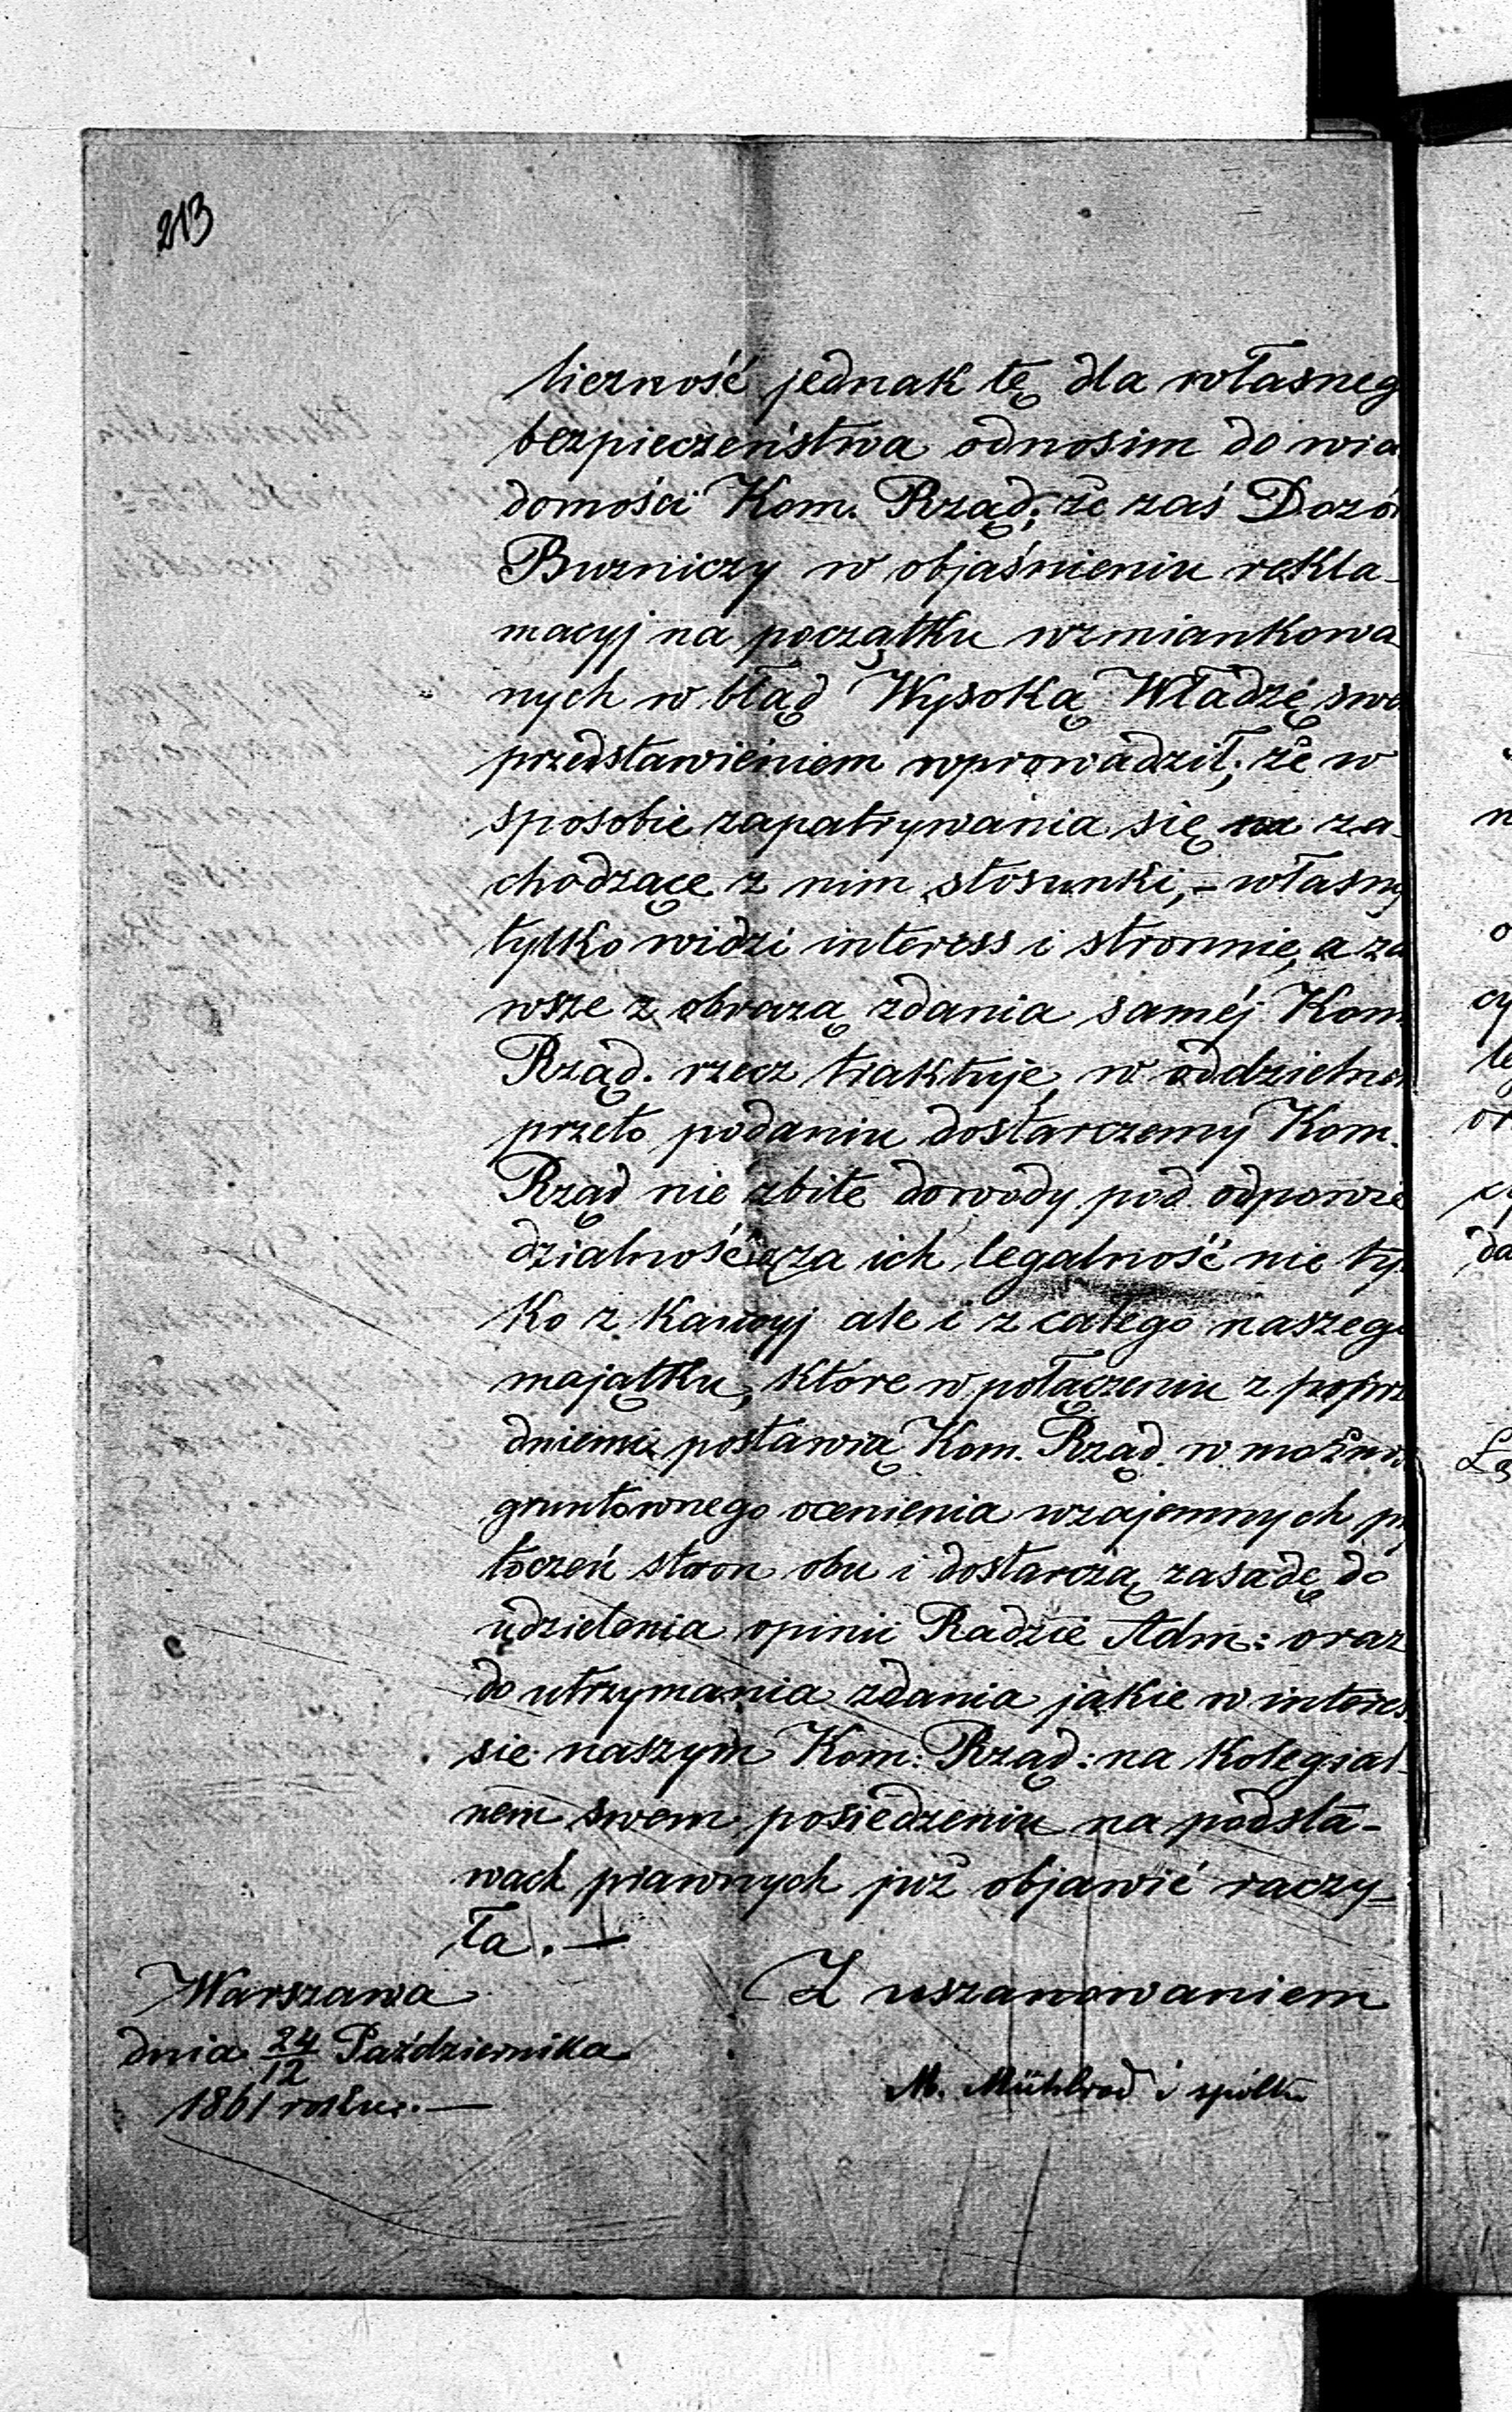 213
liczność jednak tę dla własneg
bezpieczeństwa odnosim do wia
domości Kom. Rząd; że zaś Dozó
Buzniczy w objaśnieniu rekla-
macyj na początku wzmiankowa
nych w błąd Wysoką Władzę swo
przedstawieniem wprowadził; że w
sposobie zapatrywania się na za-
chodzące z nim stosunki, - własny
tylko widzi interess i stronnie, a za
wsze z obrazą zdania saméj Kom
Rząd. rzecz traktuje, w oddzielne
przeto podaniu dostarczemy Kom.
Rząd nie zbite dowody pod odpowie
dzialnością za ich legalność nie tyl
ko z kaucyj ale i z całego naszego
majątku, które w połączeniu z poprz
dniemi postawią Kom. Rząd. w możno
gruntownego ocenienia wzajemnych p
toczeń stron obu i dostarczą zasadę do
udzielenia opinii Radzie Adm: oraz
do utrzymania zdania jakie w interes
sie naszym Kom: Rząd: na Kolegial-
nem swem posiedzeniu na podsta-
wach prawnych już objawić raczy-
ła. —
Warszawa
dnia 24/12 Października
1861 roku. —
Z uszanowaniem
M. Mühlrad i spółka